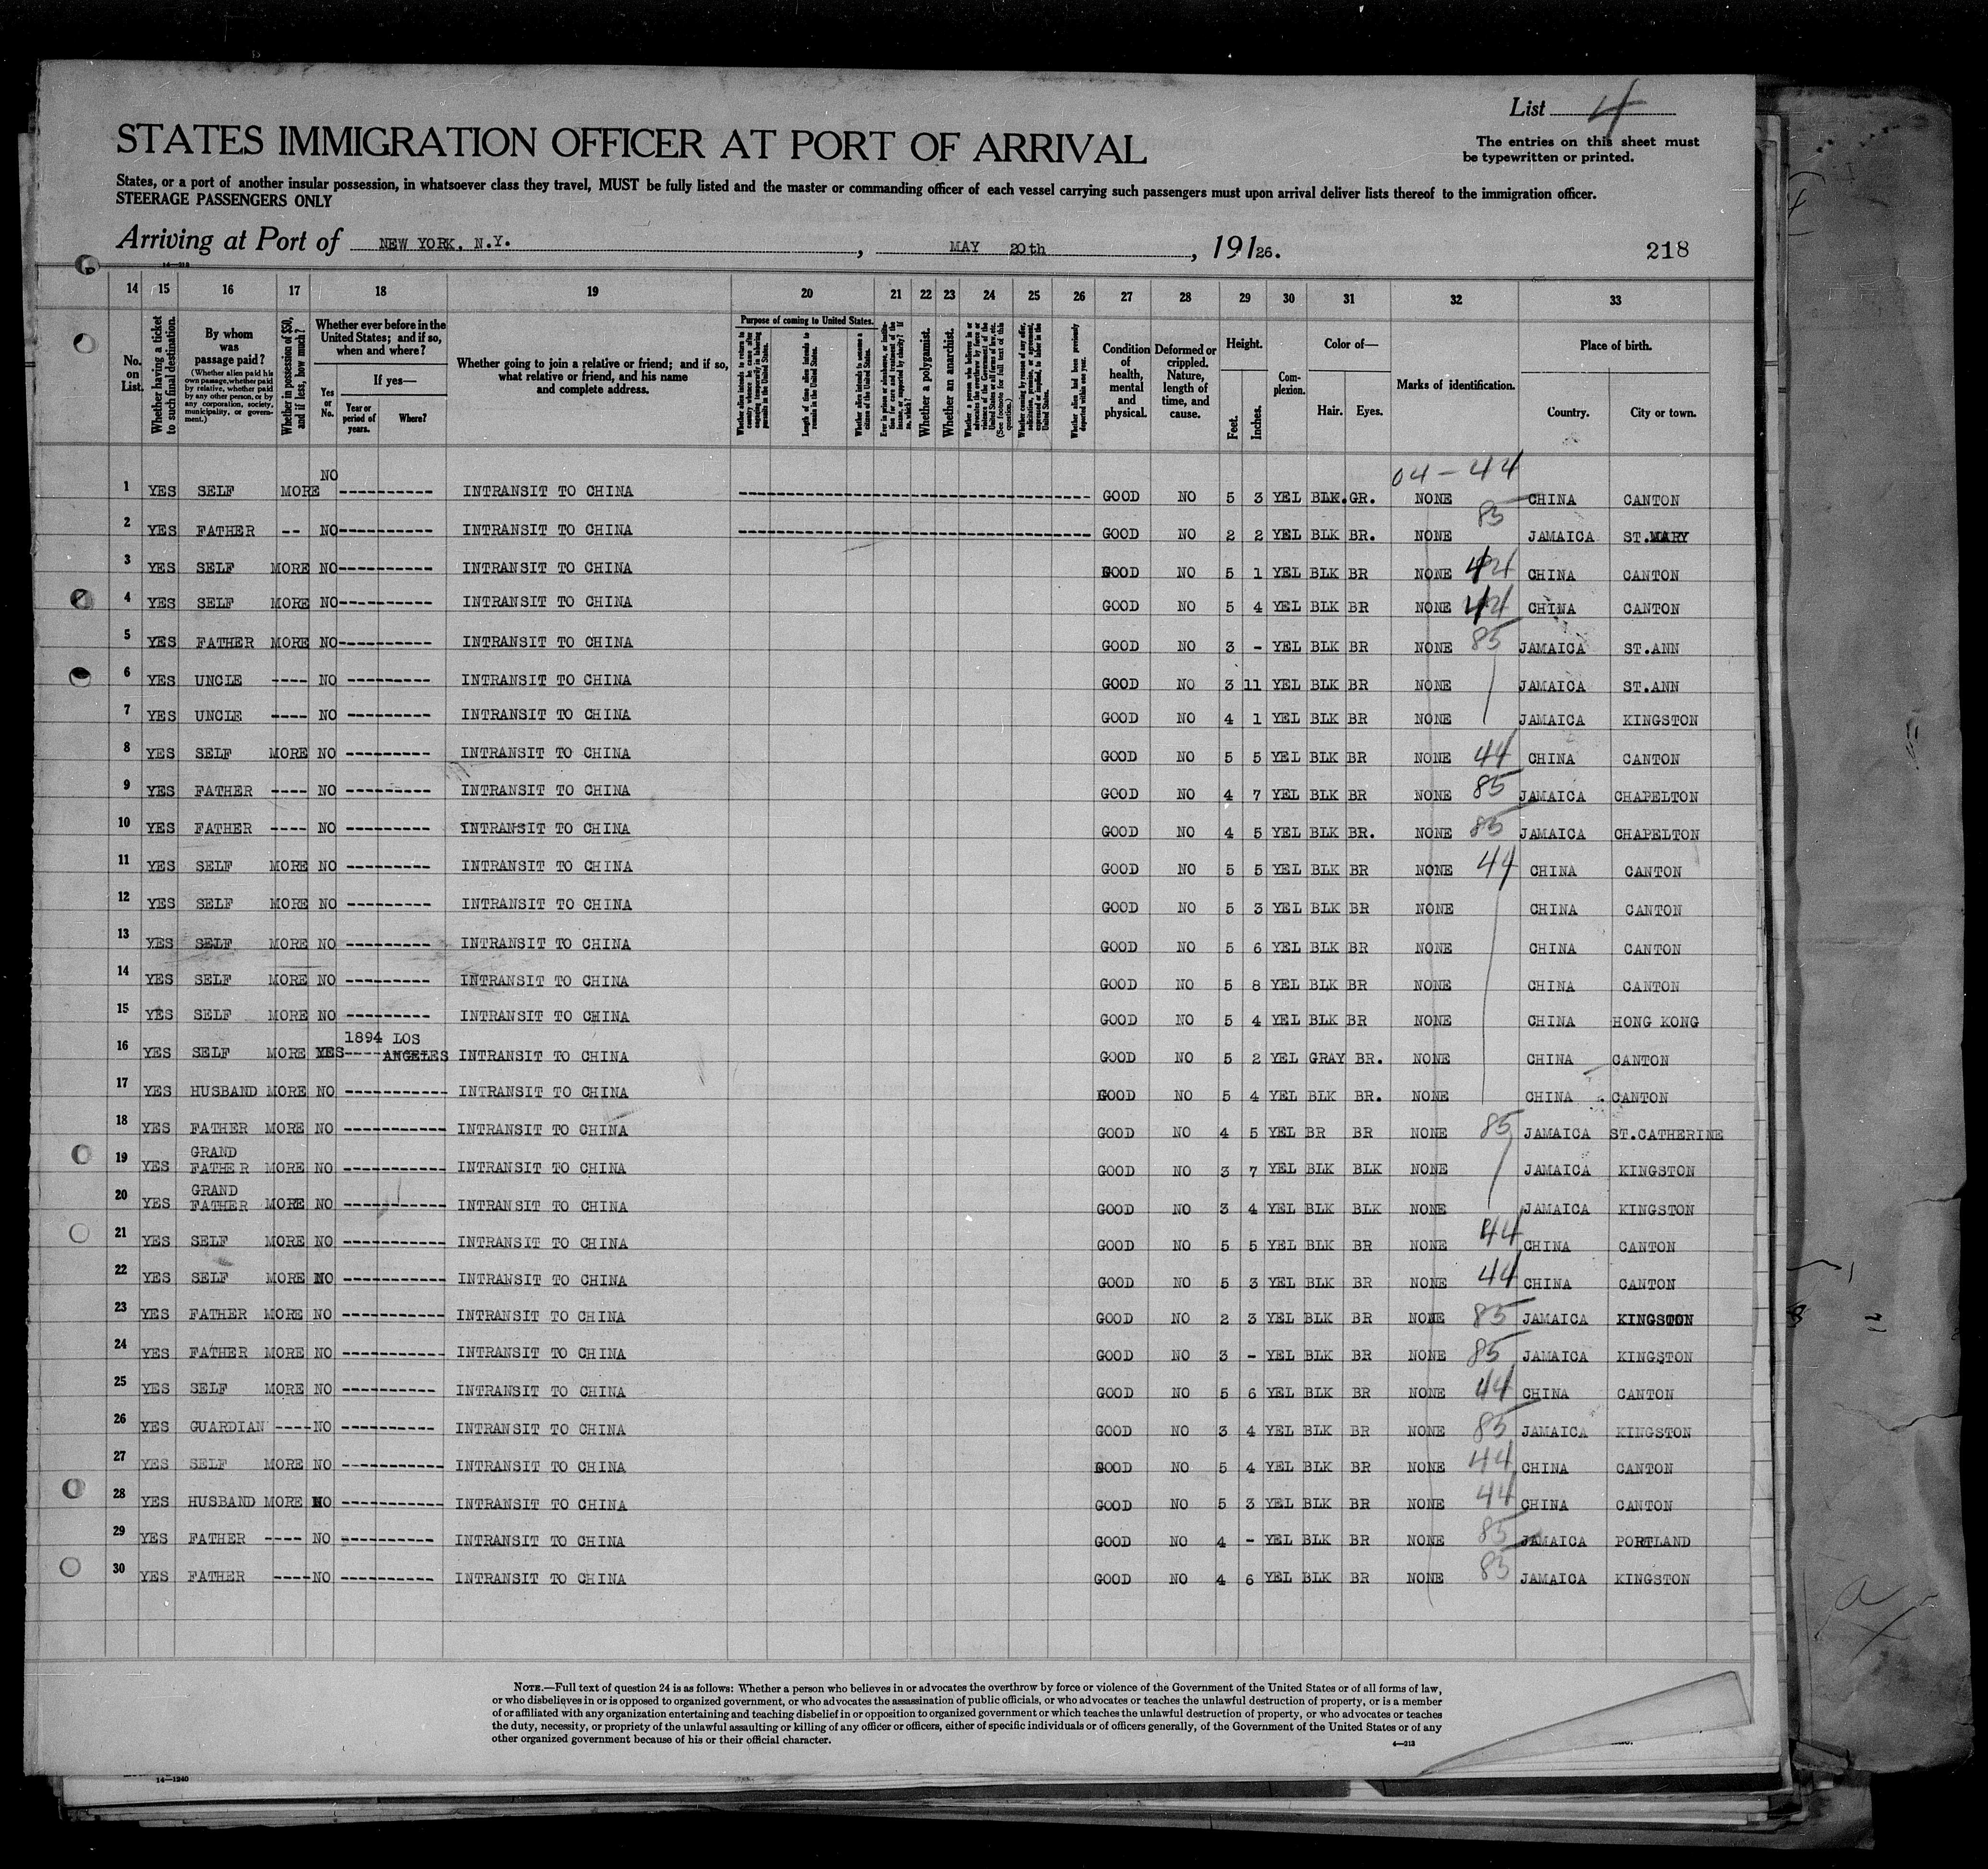 List 4
The entries on this sheet must
be typewritten or printed.
STATES IMMIGRATION OFFICER AT PORT OF ARRIVAL
States, or a port of another insular possession, in whatsoever class they travel, MUST be fully listed and the master or commanding officer of each vessel carrying such passengers must upon arrival deliver lists thereof to the immigration officer.
STEERAGE PASSENGERS ONLY
Arriving at Port of NEW YORK. N.Y. , MAY 20th , 19126. 218
14 15 16 17 18 19 20 21 22 23 24 25 26 27 28 29 30 31 32 33
No. on List.
Whether having a ticket to such final destination.
By whom was passage paid?
(Whether alien paid his own passage, whether paid by relative, whether paid by any other person, or by any corporation, society, municipality, or government.)
Whether in possession of $50, and if less, how much?
Whether ever before in the United States; and if so, when and where?
Yes or No.
If yes—
Year or period of years.
Where?
Whether going to join a relative or friend; and if so, what relative or friend, and his name and complete address.
Purpose of coming to United States.
Length of time alien intends to remain in the United States.
Whether a polygamist.
Whether an anarchist.
Condition of health, mental and physical.
Deformed or crippled. Nature, length of time, and cause.
Height.
Feet. Inches.
Complexion.
Color of—
Hair. Eyes.
Marks of identification.
Place of birth.
Country. City or town.
04 - 44
1 YES SELF MORE NO ---------- INTRANSIT TO CHINA ---------- GOOD NO 5 3 YEL BLK.GR. NONE CHINA CANTON
2 YES FATHER -- NO---------- INTRANSIT TO CHINA ---------- GOOD NO 2 2 YEL BLK BR. NONE 85 JAMAICA ST.MARY
3 YES SELF MORE NO---------- INTRANSIT TO CHINA GOOD NO 5 1 YEL BLK BR NONE 44 CHINA CANTON
4 YES SELF MORE NO---------- INTRANSIT TO CHINA GOOD NO 5 4 YEL BLK BR NONE 44 CHINA CANTON
5 YES FATHER MORE NO---------- INTRANSIT TO CHINA GOOD NO 3 - YEL BLK BR NONE 85 JAMAICA ST.ANN
6 YES UNCLE ---- NO --------- INTRANSIT TO CHINA GOOD NO 3 11 YEL BLK BR NONE JAMAICA ST.ANN
7 YES UNCLE ---- NO --------- INTRANSIT TO CHINA GOOD NO 4 1 YEL BLK BR NONE JAMAICA KINGSTON
8 YES SELF MORE NO --------- INTRANSIT TO CHINA GOOD NO 5 5 YEL BLK BR NONE 44 CHINA CANTON
9 YES FATHER ---- NO --------- INTRANSIT TO CHINA GOOD NO 4 7 YEL BLK BR NONE 85 JAMAICA CHAPELTON
10 YES FATHER ---- NO --------- INTRANSIT TO CHINA GOOD NO 4 5 YEL BLK BR. NONE 85 JAMAICA CHAPELTON
11 YES SELF MORE NO --------- INTRANSIT TO CHINA GOOD NO 5 5 YEL BLK BR NONE 44 CHINA CANTON
12 YES SELF MORE NO --------- INTRANSIT TO CHINA GOOD NO 5 3 YEL BLK BR NONE CHINA CANTON
13 YES SELF MORE NO --------- INTRANSIT TO CHINA GOOD NO 5 6 YEL BLK BR NONE CHINA CANTON
14 YES SELF MORE NO --------- INTRANSIT TO CHINA GOOD NO 5 8 YEL BLK BR NONE CHINA CANTON
15 YES SELF MORE NO --------- INTRANSIT TO CHINA GOOD NO 5 4 YEL BLK BR NONE CHINA HONG KONG
16 YES SELF MORE YES---- 1894 LOS ANGELES INTRANSIT TO CHINA GOOD NO 5 2 YEL GRAY BR. NONE CHINA CANTON
17 YES HUSBAND MORE NO ----------- INTRANSIT TO CHINA GOOD NO 5 4 YEL BLK BR. NONE CHINA CANTON
18 YES FATHER MORE NO ----------- INTRANSIT TO CHINA GOOD NO 4 5 YEL BR BR NONE 85 JAMAICA ST.CATHERINE
19 YES GRAND FATHER MORE NO ----------- INTRANSIT TO CHINA GOOD NO 3 7 YEL BLK BLK NONE JAMAICA KINGSTON
20 YES GRAND FATHER MORE NO ----------- INTRANSIT TO CHINA GOOD NO 3 4 YEL BLK BLK NONE JAMAICA KINGSTON
21 YES SELF MORE NO ----------- INTRANSIT TO CHINA GOOD NO 5 5 YEL BLK BR NONE 44 CHINA CANTON
22 YES SELF MORE NO ----------- INTRANSIT TO CHINA GOOD NO 5 3 YEL BLK BR NONE 44 CHINA CANTON
23 YES FATHER MORE NO ----------- INTRANSIT TO CHINA GOOD NO 2 3 YEL BLK BR NONE 85 JAMAICA KINGSTON
24 YES FATHER MORE NO ----------- INTRANSIT TO CHINA GOOD NO 3 - YEL BLK BR NONE 85 JAMAICA KINGSTON
25 YES SELF MORE NO ---------- INTRANSIT TO CHINA GOOD NO 5 6 YEL BLK BR NONE 44 CHINA CANTON
26 YES GUARDIAN ----NO ---------- INTRANSIT TO CHINA GOOD NO 3 4 YEL BLK BR NONE 85 JAMAICA KINGSTON
27 YES SELF MORE NO ----------- INTRANSIT TO CHINA GOOD NO 5 4 YEL BLK BR NONE 44 CHINA CANTON
28 YES HUSBAND MORE NO ----------- INTRANSIT TO CHINA GOOD NO 5 3 YEL BLK BR NONE 44 CHINA CANTON
29 YES FATHER ---- NO ---------- INTRANSIT TO CHINA GOOD NO 4 - YEL BLK BR NONE 85 JAMAICA PORTLAND
30 YES FATHER ----NO ---------- INTRANSIT TO CHINA GOOD NO 4 6 YEL BLK BR NONE 85 JAMAICA KINGSTON
NOTE.—Full text of question 24 is as follows: Whether a person who believes in or advocates the overthrow by force or violence of the Government of the United States or of all forms of law,
or who disbelieves in or is opposed to organized government, or who advocates the assassination of public officials, or who advocates or teaches the unlawful destruction of property, or is a member
of or affiliated with any organization entertaining and teaching disbelief in or opposition to organized government or which teaches the unlawful destruction of property, or who advocates or teaches
the duty, necessity, or propriety of the unlawful assaulting or killing of any officer or officers, either of specific individuals or of officers generally, of the Government of the United States or of any
other organized government because of his or their official character.
4—213
14—1240